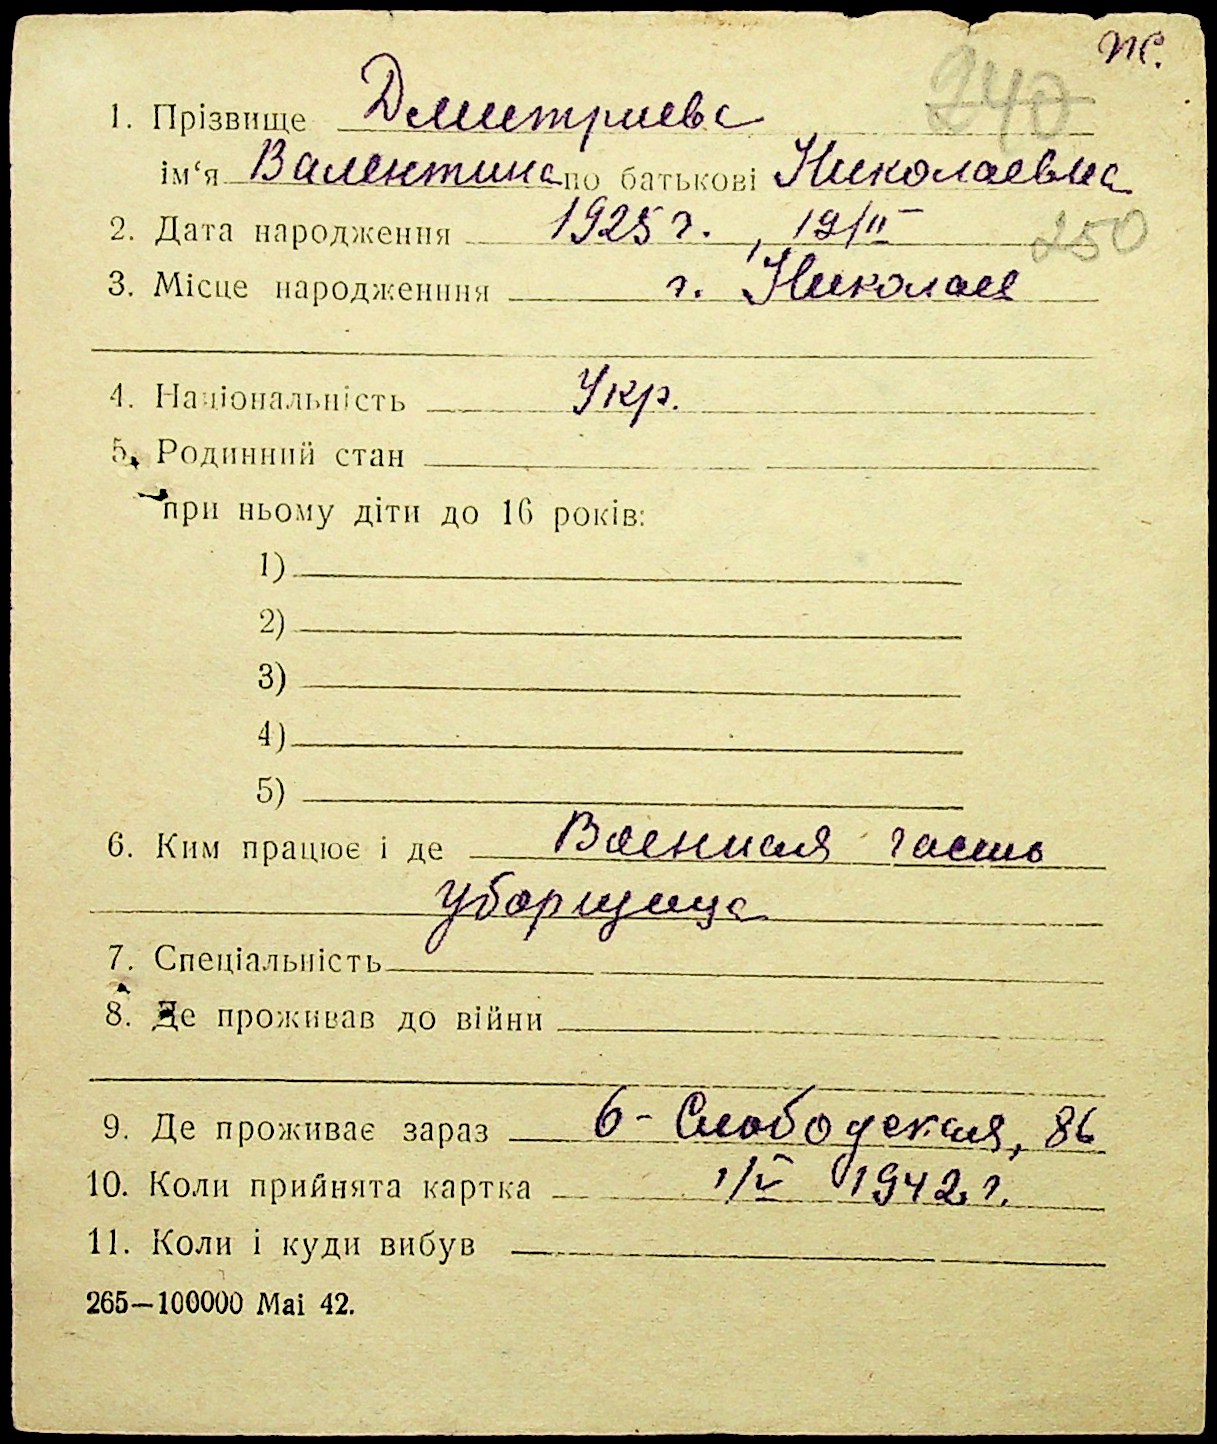 Ж.
240
1. Прізвище Дмитриева
ім‘я Валентина по батькові Николаевна
2. Дата народження 1925 г., 19/II
250
3. Місце народженння г. Николаев
4. Національність Укр.
5. Родинний стан
при ньому діти до 16 років:
1)
2)
3)
4)
5)
6. Ким працює і де Военная часть
уборщица
7. Спеціальність
8. Де проживав до війни
9. Де проживає зараз 6-Слободская, 86
10. Коли прийнята картка 1/V 1942 г.
11. Коли і куди вибув
265—100000 Mai 42.